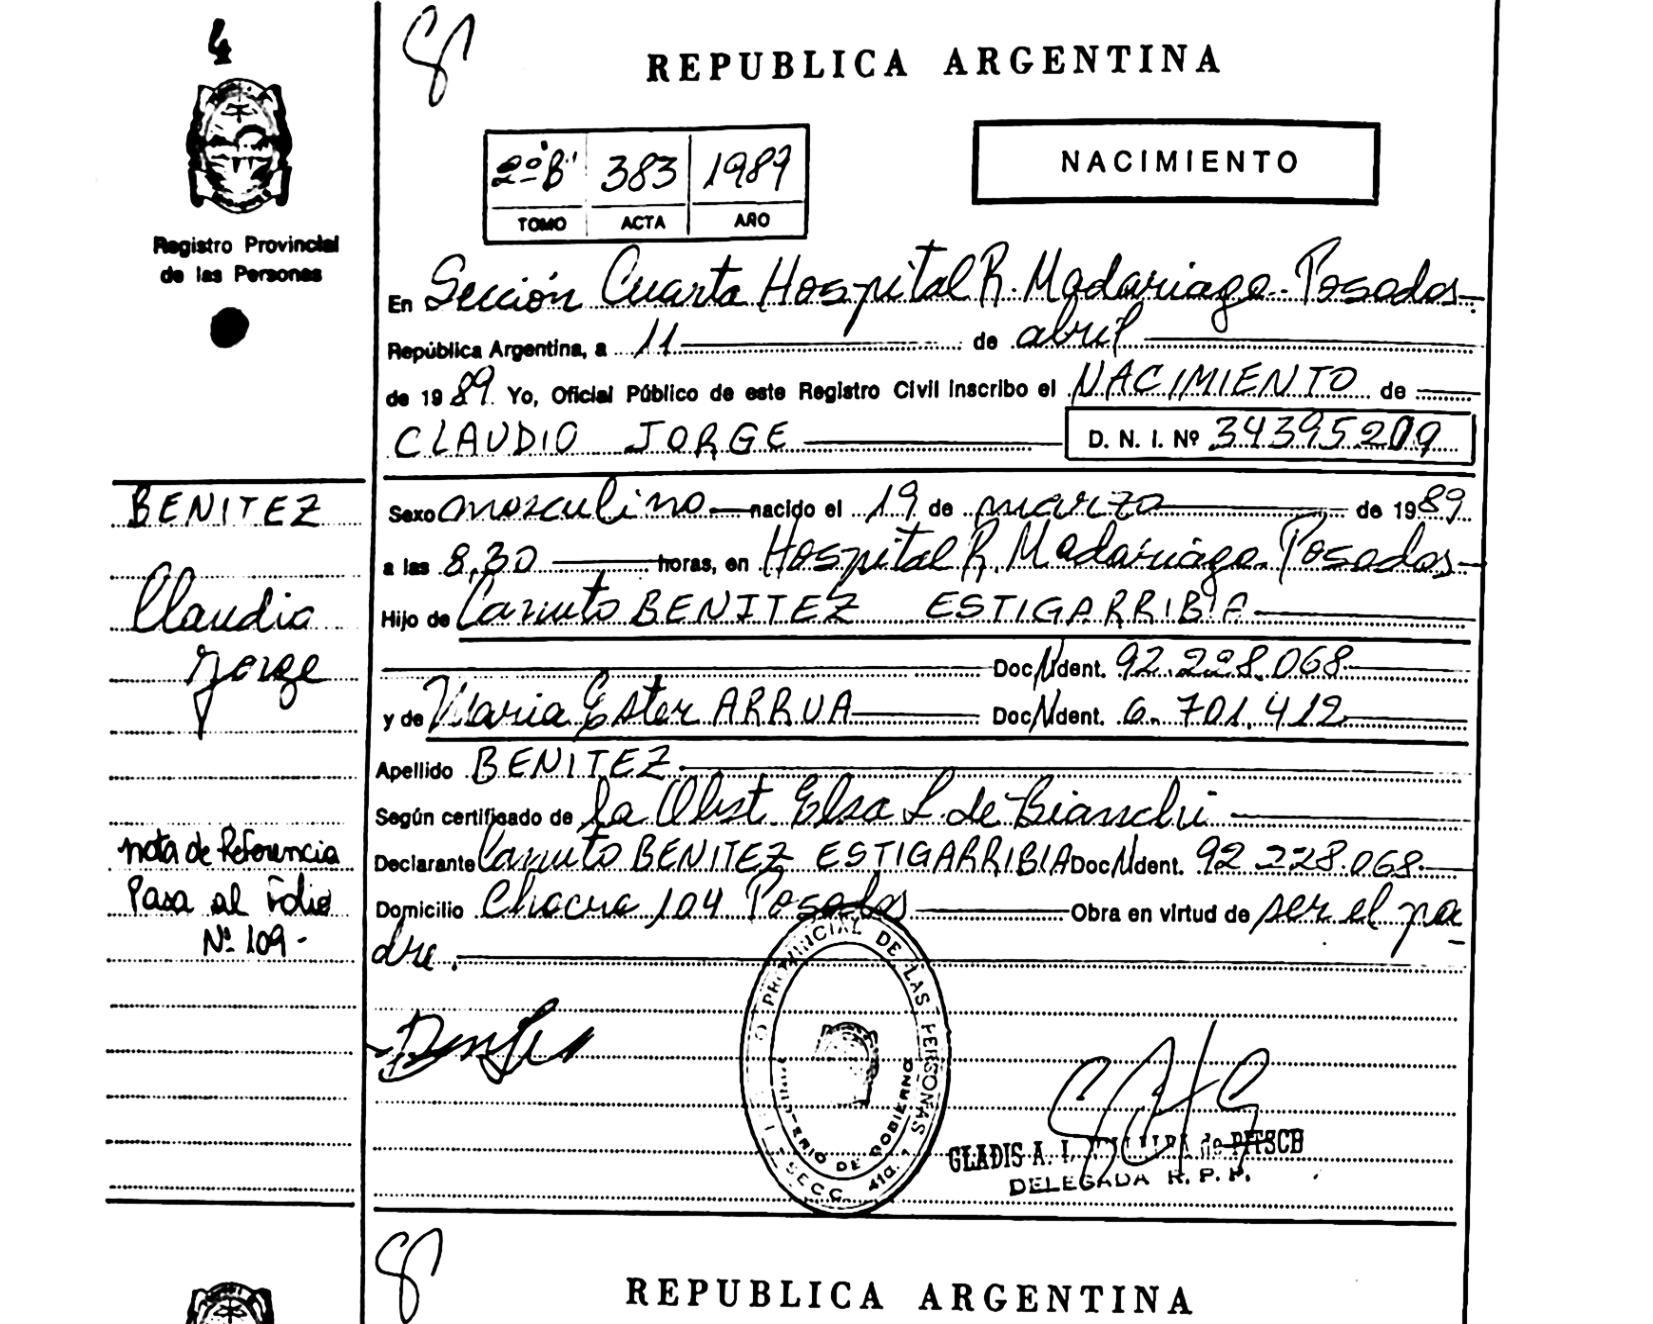 4
8
REPUBLICA ARGENTINA
2º "B" 383 1989
TOMO ACTA AÑO
NACIMIENTO
Registro Provincial
de las Personas
En Sección Cuarta Hospital R. Madariaga - Posadas
República Argentina, a 11 de abril
de 1989 Yo, Oficial Público de este Registro Civil inscribo el NACIMIENTO de
CLAUDIO JORGE D. N. I. Nº 34395209
BENITEZ
Claudio
Jorge
Sexo masculino nacido el 19 de marzo de 1989
a las 8,30 horas, en Hospital R. Madariaga - Posadas
Hijo de Canuto BENITEZ ESTIGARRIBIA
Doc. Ident. 92.228.068
y de Maria Ester ARRUA Doc. Ident. 6.701.412
Apellido BENITEZ
Según certificado de la Obst. Elsa L. de Bianchi
Declarante Canuto BENITEZ ESTIGARRIBIA Doc. Ident. 92.228.068
Domicilio Chacra 104 Posadas Obra en virtud de ser el pa
dre.
nota de Referencia
Pasa al Folio
Nº 109 -
PROVINCIAL DE LAS PERSONAS
MINISTERIO DE GOBIERNO
SECC. 4ta.
GLADIS A. I. de PITSCH
DELEGADA R. P. P.
8
REPUBLICA ARGENTINA